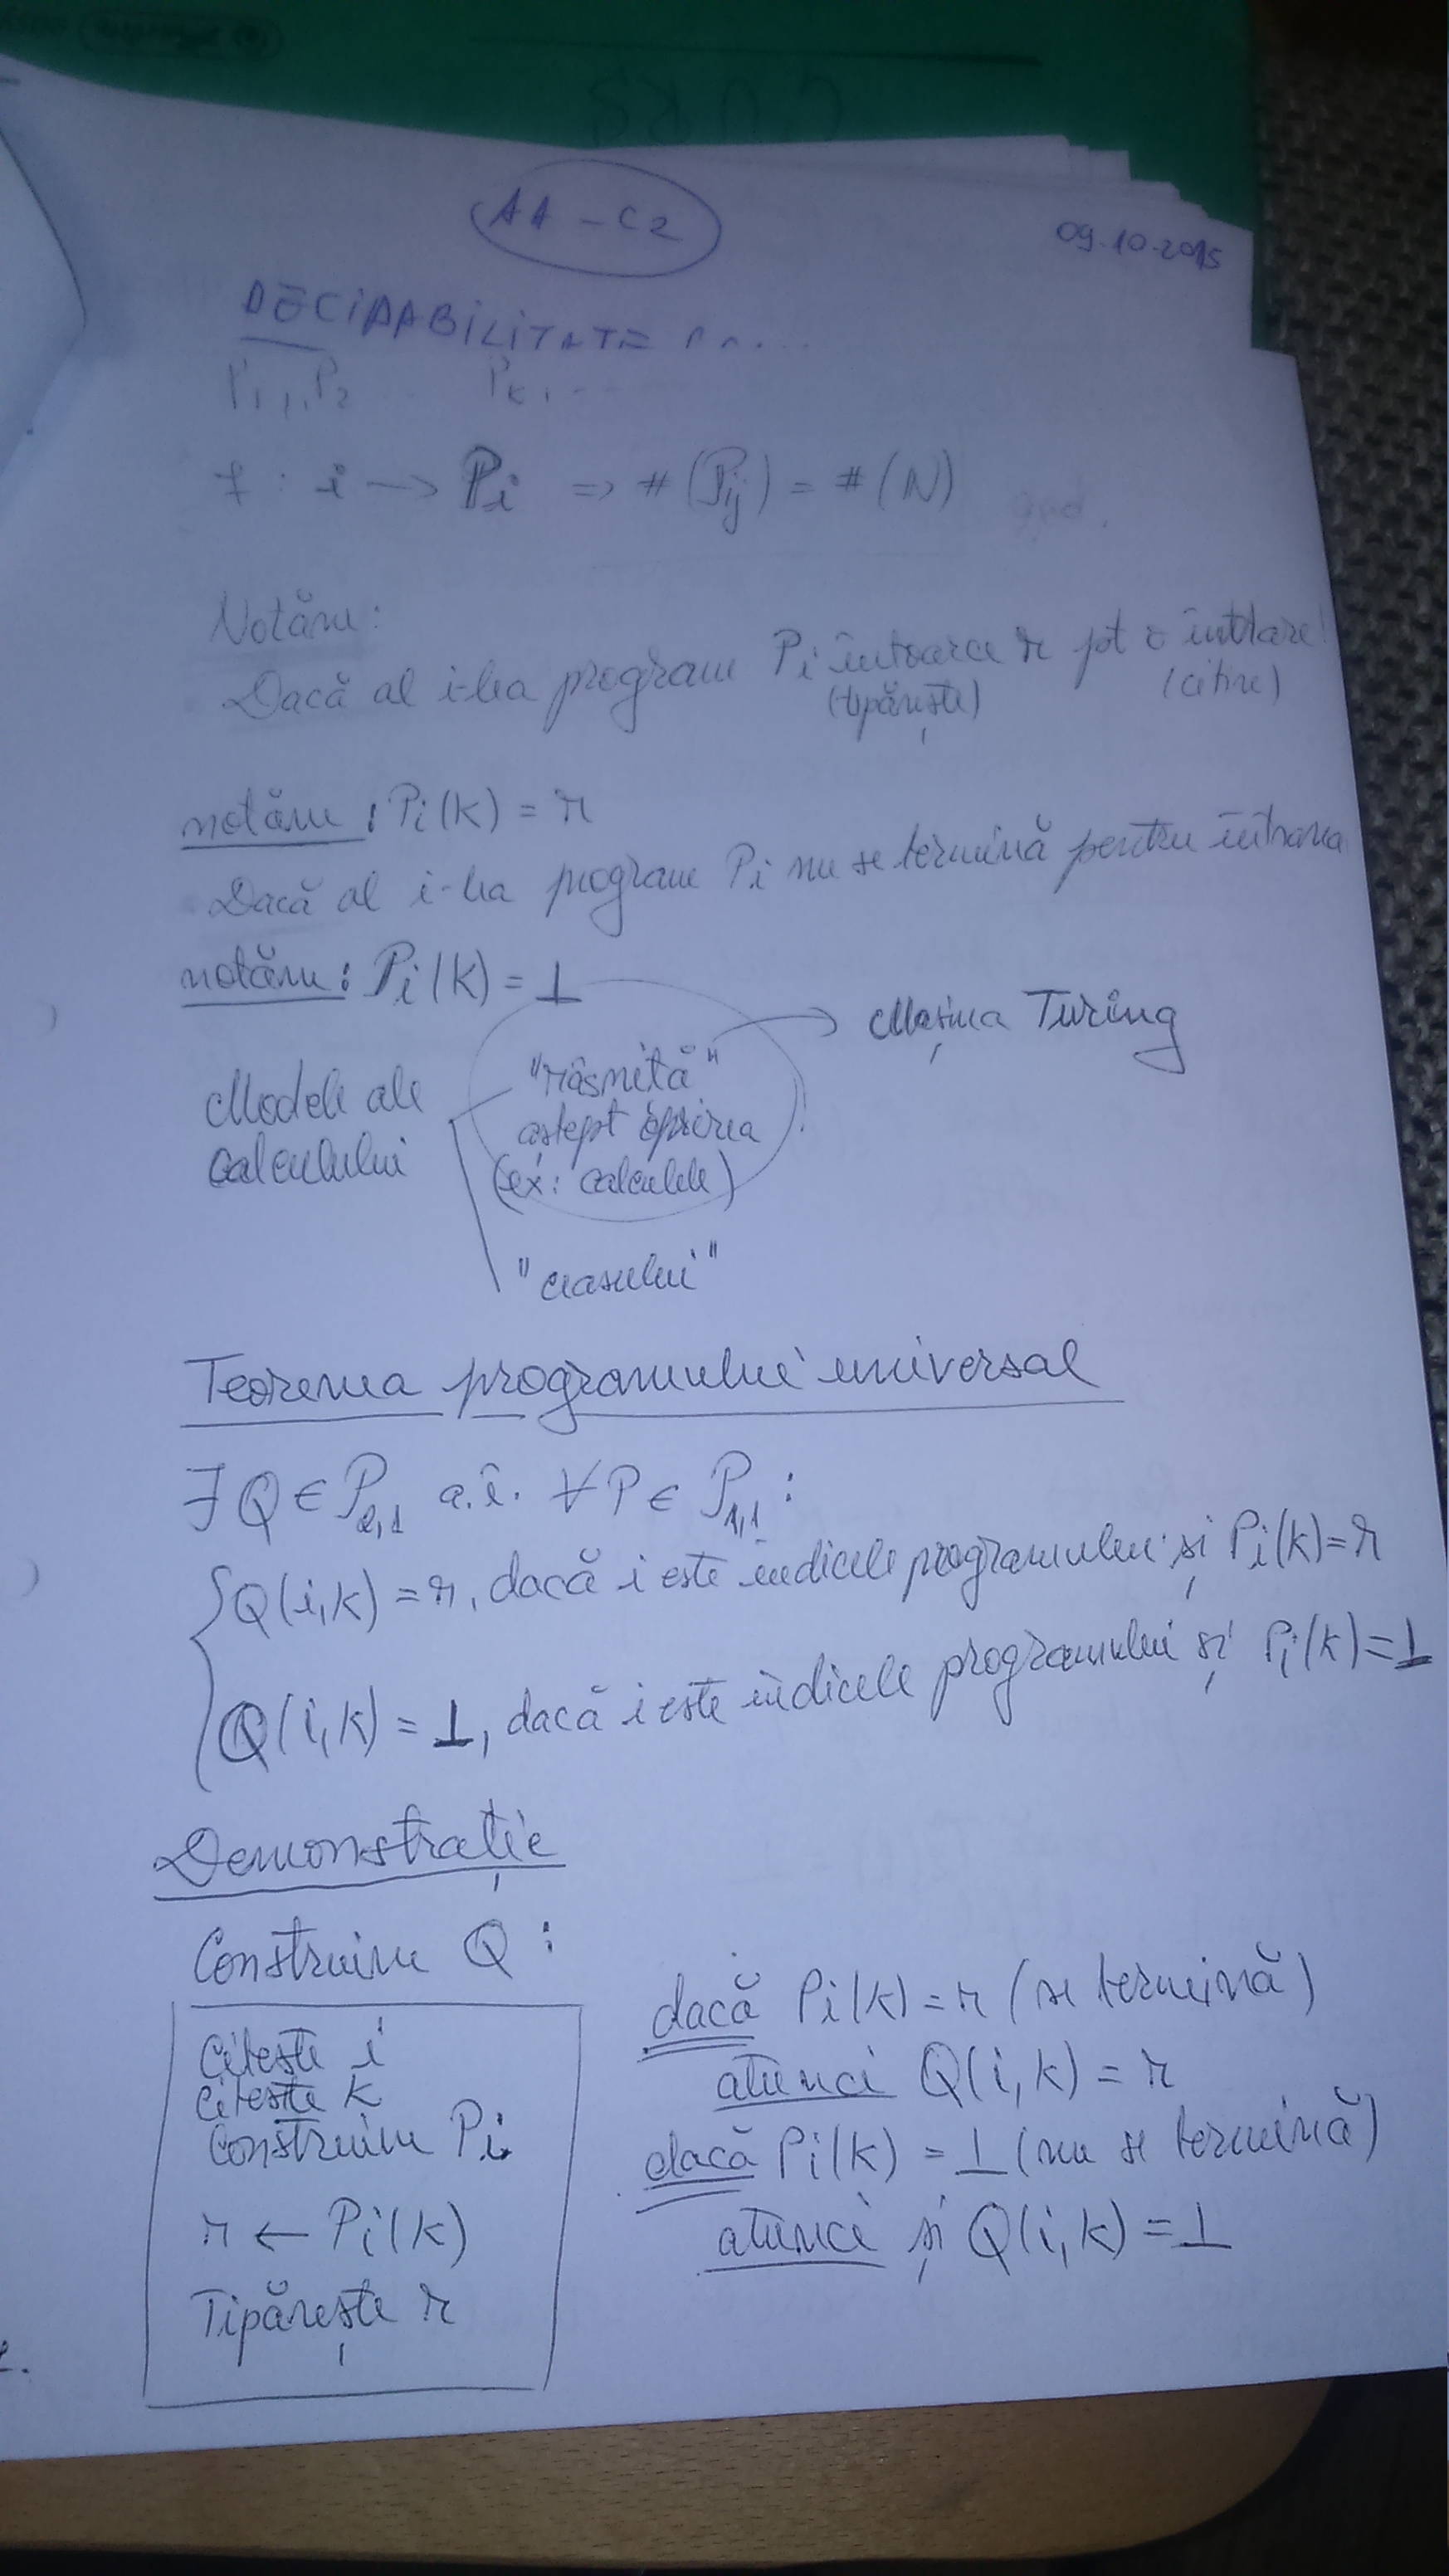 CURS
A1 - C2
09.10.2015
DECIDABILITATE
P1, P2 ... Pk, ...
f : i -> Pi => # (Pij) = # (N)
Notăm:
Dacă al i-lea program Pi întoarce r pt o intrare
(tipărește) (citire)
notăm: Pi(k) = r
Dacă al i-lea program Pi nu se termină pentru intrarea
notăm: Pi(k) = ⊥
Modele ale
calculului
"răsmită"
aștept
(ex: calculele)
-> Mașina Turing
"orașului"
Teorema programului universal
∃ Q ∈ P2,1 a.î. ∀ P ∈ P1,1 :
Q(i,k) = r, dacă i este indicele programului și Pi(k)=r
Q(i,k) = ⊥, dacă i este indicele programului și Pi(k)=⊥
Demonstrație
Construim Q :
Citește i
Citește k
Construim Pi
r ← Pi(k)
Tipărește r
dacă Pi(k) = r (se termină)
atunci Q(i,k) = r
dacă Pi(k) = ⊥ (nu se termină)
atunci și Q(i,k) = ⊥